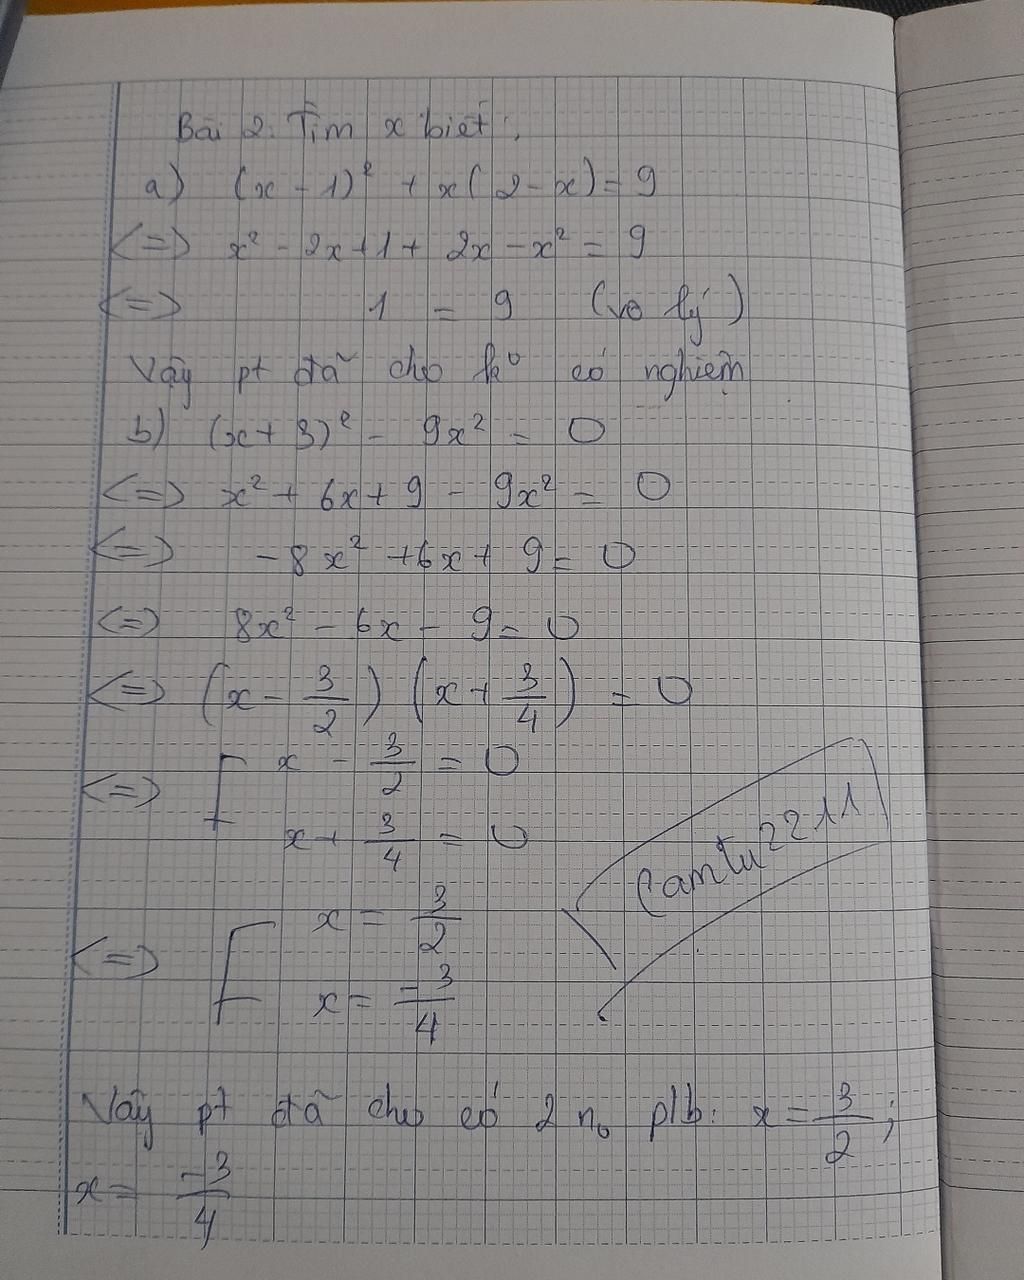 Bài 2. Tìm x biết:
a) (x - 1)² + x(2 - x) = 9
<=> x² - 2x + 1 + 2x - x² = 9
<=> 1 = 9 (vô lý)
Vậy pt đã cho k° có nghiệm
b) (x + 3)² - 9x² = 0
<=> x² + 6x + 9 - 9x² = 0
<=> -8x² + 6x + 9 = 0
<=> 8x² - 6x - 9 = 0
<=> (x - 3/2) (x + 3/4) = 0
<=> [ x - 3/2 = 0
x + 3/4 = 0
Camtu2211
<=> [ x = 3/2
x = -3/4
Vậy pt đã cho có 2 n₀ plb: x = 3/2;
x = -3/4